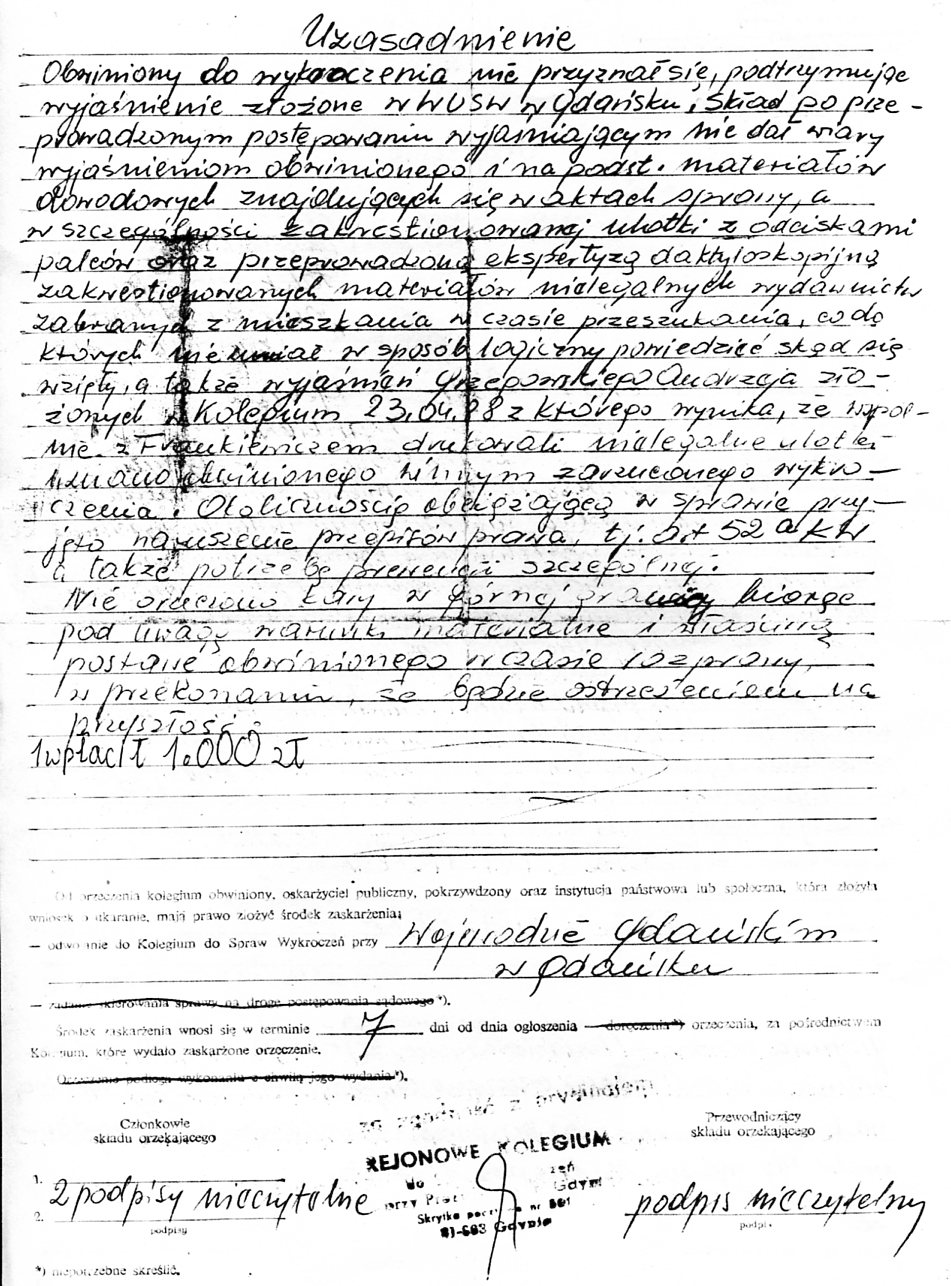 Uzasadnienie
Obwiniony do wykroczenia nie przyznał się, podtrzymując
wyjaśnienie złożone w WUSW w Gdańsku, Skład po prze-
prowadzonym postępowaniu wyjaśniającym nie dał wiary
wyjaśnieniom obwinionego i na podst. materiałów
dowodowych znajdujących się w aktach sprawy, a
w szczególności zakwestionowanej ulotki z odciskami
palców oraz przeprowadzoną ekspertyzą daktyloskopijną
zakwestionowanych materiałów nielegalnych wydawnictw
zabranych z mieszkania w czasie przeszukania, co do
których nie umiał w sposób logiczny powiedzieć skąd się
wzięły, a także wyjaśnień Andrzeja zło-
żonych w Kolegium 23.04.88 z którego wynika, że wspól-
nie z Frankiewiczem drukowali nielegalne ulotki
uznano obwinionego winnym zarzuconego wykro-
czenia. Okolicznością obciążającą w sprawie przy-
jęto naruszenie przepisów prawa, tj. art 52 a kw
a także potrzebę prewencji szczególnej.
Nie orzeczono kary w górnej granicy biorąc
pod uwagę warunki materialne i właściwą
postawę obwinionego w czasie rozprawy,
w przekonaniu, że będzie ostrzeżeniem na
przyszłość.
wpłacił 1.000 zł
Od orzeczenia kolegium obwiniony, oskarżyciel publiczny, pokrzywdzony oraz instytucja państwowa lub społeczna, która złożyła
wniosek o ukaranie, mają prawo złożyć środek zaskarżenia:
— odwołanie do Kolegium do Spraw Wykroczeń przy Wojewodzie Gdańskim
w Gdańsku
— żądanie skierowania sprawy na drogę postępowania sądowego *).
Środek zaskarżenia wnosi się w terminie 7 dni od dnia ogłoszenia — doręczenia*) orzeczenia, za pośrednictwem
Kolegium, które wydało zaskarżone orzeczenie.
Orzeczenie podlega wykonaniu z chwilą jego wydania*).
za zgodność z oryginałem
Członkowie
składu orzekającego
Przewodniczący
składu orzekającego
REJONOWE KOLEGIUM
do
przy Gdyni
Skrytka nr
Gdynia
1.
2. 2 podpisy nieczytelne
podpisy
podpis nieczytelny
podpis
*) niepotrzebne skreślić.